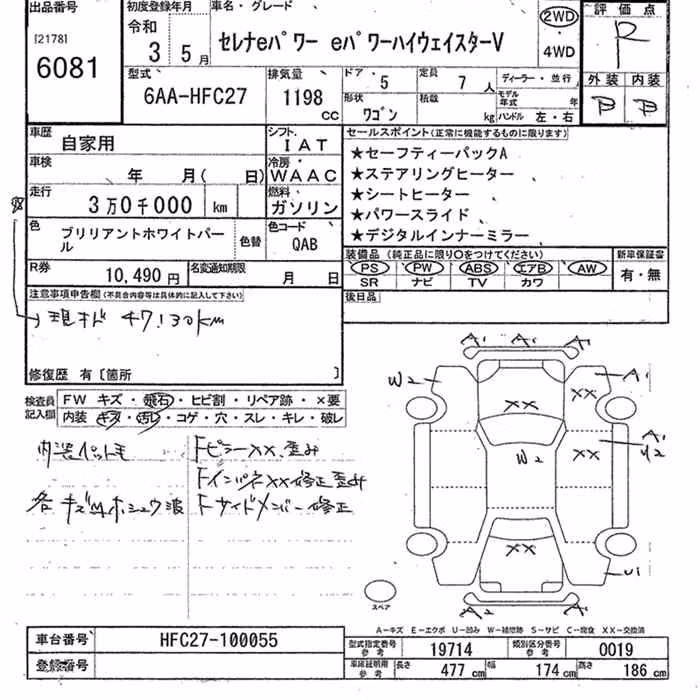 出品番号
[2178]
6081
初度登録年月
令和
3年5月
車名・グレード
セレナeパワー eパワーハイウェイスターV
2WD
・
4WD
評価点
R
外装 内装
B B
型式
6AA-HFC27
排気量
1198
CC
ドア・
5
定員
7人
ディーラー・並行
形状
ワゴン
積載
kg
モデル年式 年
ハンドル 左・右
車歴
自家用
シフト
IAT
車検
年 月( 日)
冷房
WAAC
走行
3万0千000 km
燃料
ガソリン
色
ブリリアントホワイトパール
色替
色コード
QAB
R券
10,490円
名変通知期限
月 日
セールスポイント(正常に機能するものに限ります)
★セーフティーパックA
★ステアリングヒーター
★シートヒーター
★パワースライド
★デジタルインナーミラー
装備品(純正品に限り○をつけてください)
PS PW ABS エアB AW
SR ナビ TV カワ
新車保証書
有・無
後日品
注意事項申告欄(不具合内容等は具体的に記入して下さい)
→現オド 47,130km
修復歴 有〔箇所 〕
検査員
記入欄
FW キズ・飛石・ヒビ割・リペア跡・×要
内装 キズ・汚レ・コゲ・穴・スレ・キレ・破レ
内装ペット毛
各キズ凹ホシュウ波
FピラーXX.歪み
FインパネXX修正歪み
Fサイドメンバー修正
A1 A1 A1
W2
XX
XX
A1
W2
XX
A1
XX
A2
A1
U1
スペア
A－キズ E－エクボ U－凹み W－補修跡 S－サビ C－腐食 XX－交換済
車台番号
HFC27-100055
登録番号
型式指定番号
参考
19714
類別区分番号
参考
0019
車庫証明用
参考
長さ
477cm
幅
174cm
高さ
186cm